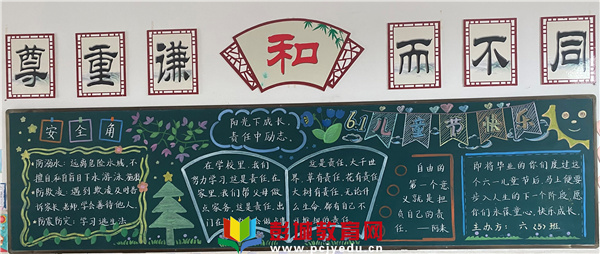 尊 重 谦 和 而 不 同
安 全 角
•防溺水：远离危险水域，不
擅自
•防欺凌：遇到欺凌及时告
诉家长、老师，学会善待他人。
•防震防灾：学习逃生法
阳光下成长，
责任中励志。
在学校里，我们
努力学习这是责任，在
家里，我们帮父母做
点家务，这是责任，出
这是责任。大千世
界，草有责任，花有责任，
大树有责任，无论什
么生命，都有自己不
6.1儿童节快乐
自由的
第一个意
义就是担
负自己的责
任。——阿来
即将毕业的你们度过这
个六一儿童节后，马上便要
步入人生的下一个阶段，愿
你们永葆童心，快乐成长。
主办方：六（5）班
彭城教育网
www.pcjyedu.cn